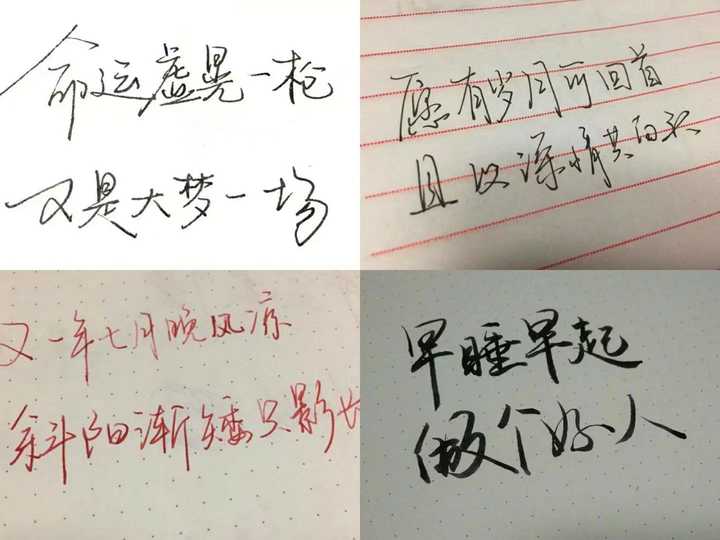 命运虚晃一枪
又是大梦一场
愿有岁月可回首
且以深情共白头
又一年七月晚风凉
斜阳渐矮只影长
早睡早起
做个好人